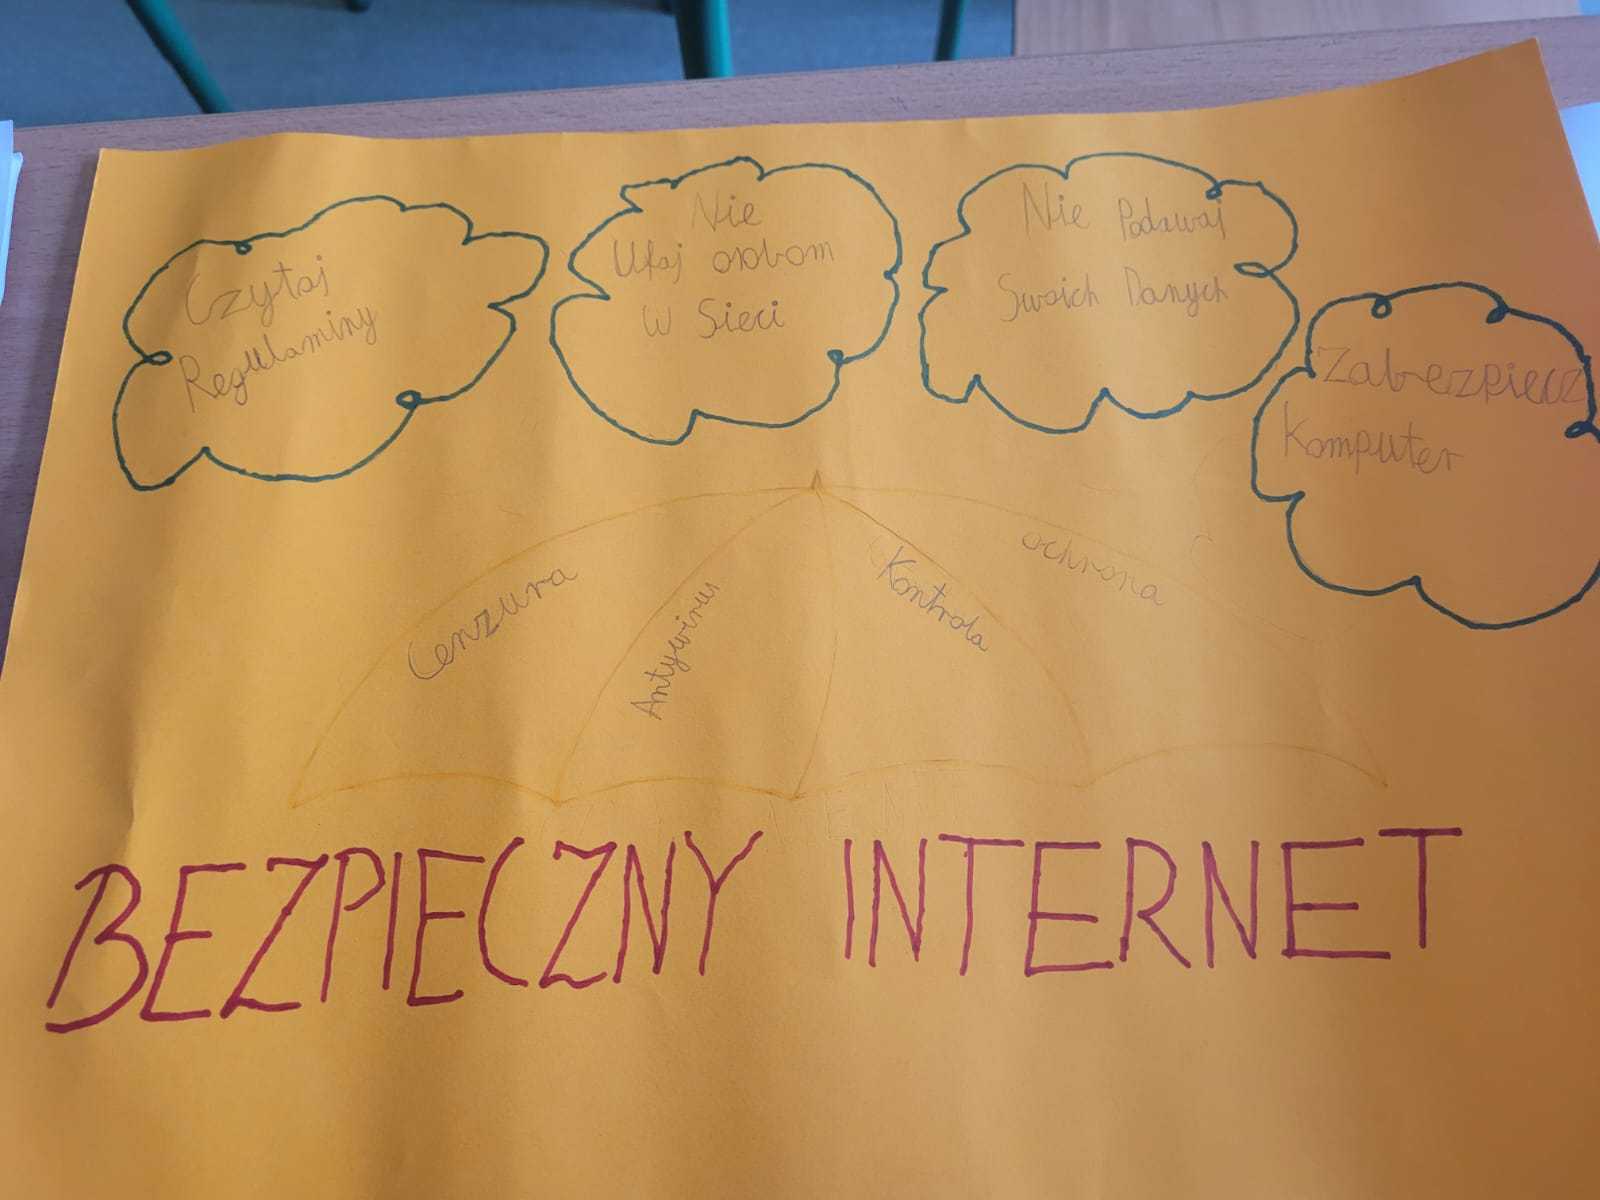 Czytaj
Regulaminy
Nie
Ufaj osobom
W Sieci
Nie Podawaj
Swoich Danych
Zabezpiecz
Komputer
Cenzura
Antywirus
Kontrola
ochrona
BEZPIECZNY INTERNET